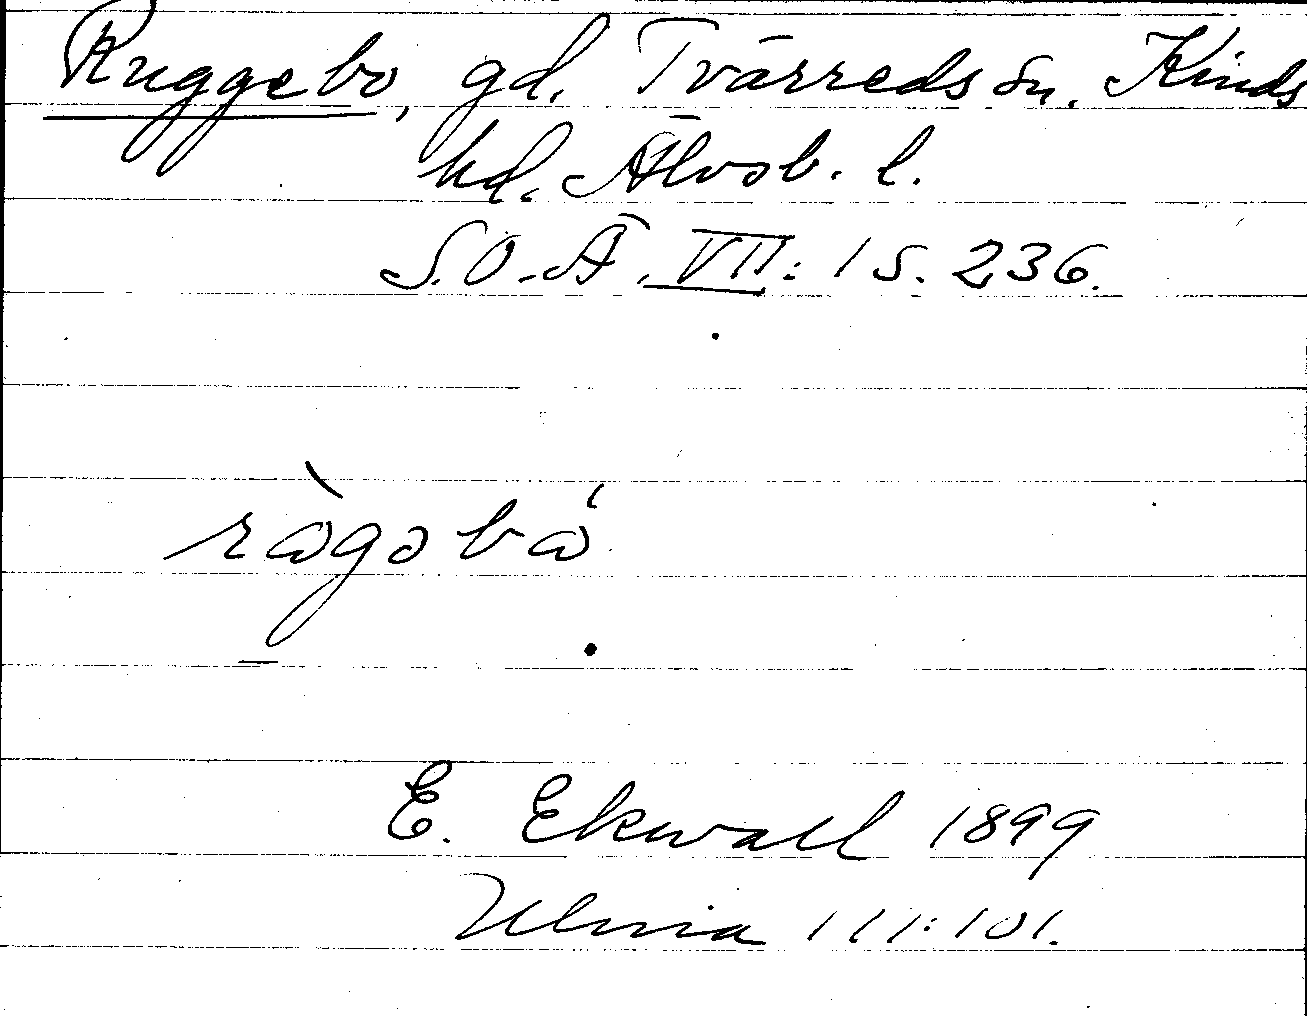 Ruggebo, gd. Tvärreds sn. Kinds
hd. Älvsb. l.
S.O.Ä. VII: 1 s. 236.
rὼgəbώ
E. Ekwall 1899
Ulma 111:101.